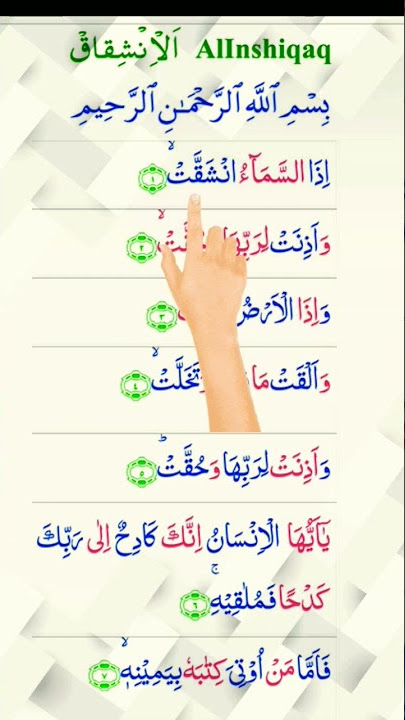 اَلْاِنْشِقَاقْ AlInshiqaq
بِسْمِ ٱللَّهِ ٱلرَّحْمَٰنِ ٱلرَّحِيمِ
اِذَا السَّمَآءُ انْشَقَّتْۙ ۱
وَاَذِنَتْ لِرَبِّهَا ۲
وَاِذَا الْاَرْضُ ۳
وَاَلْقَتْ مَا وَتَخَلَّتْۙ ۴
وَاَذِنَتْ لِرَبِّهَا وَحُقَّتْؕ ۵
يٰۤاَيُّهَا الْاِنْسَانُ اِنَّكَ كَادِحٌ اِلٰى رَبِّكَ
كَدْحًا فَمُلٰقِيْهِۚ ۶
فَاَمَّا مَنْ اُوْتِيَ كِتٰبَهٗ بِيَمِيْنِهٖۙ ۷